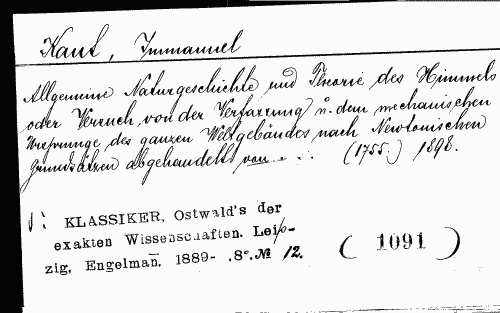 Kant, Immanuel
Allgemeine Naturgeschichte und Theorie des Himmels
oder Versuch von der Verfassung u. dem mechanischen
Ursprunge des ganzen Weltgebäudes nach Newtonischen
Grundsätzen abgehandelt von . . . (1755.) 1898.
KLASSIKER, Ostwald's der
exakten Wissenschaften. Leip-
zig, Engelman̄. 1889- .8º. № 12.
( 1091 )